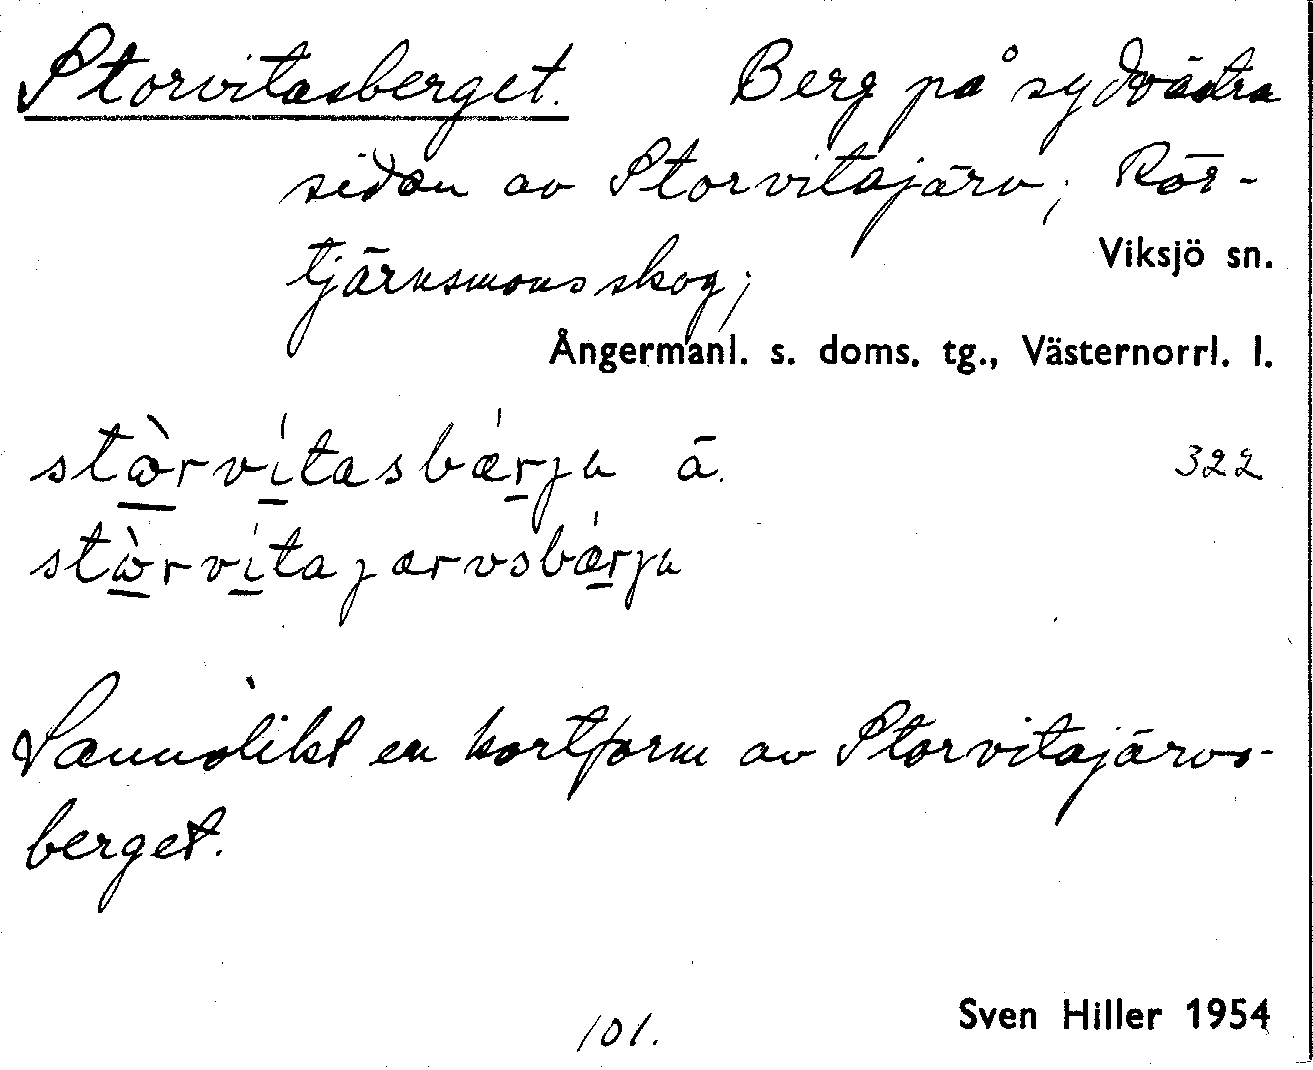 Storvitasberget. Berg på sydvästra
sidan av Storvitajärv; Röt-
tjärnsmons skog;
Viksjö sn.
Ångermanl. s. doms. tg., Västernorrl. l.
stὼrvítasbǽrjα ā. 322
stὼrvítajærvsbǽrjα
Sannolikt en kortform av Storvitajärvs-
berget.
Sven Hiller 1954
101.